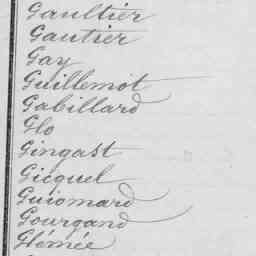 Gaultier
Gautier
Gay
Guillemot
Gabillard
Glo
Gingast
Gicquel
Guiomard
Gourgand
Glémée